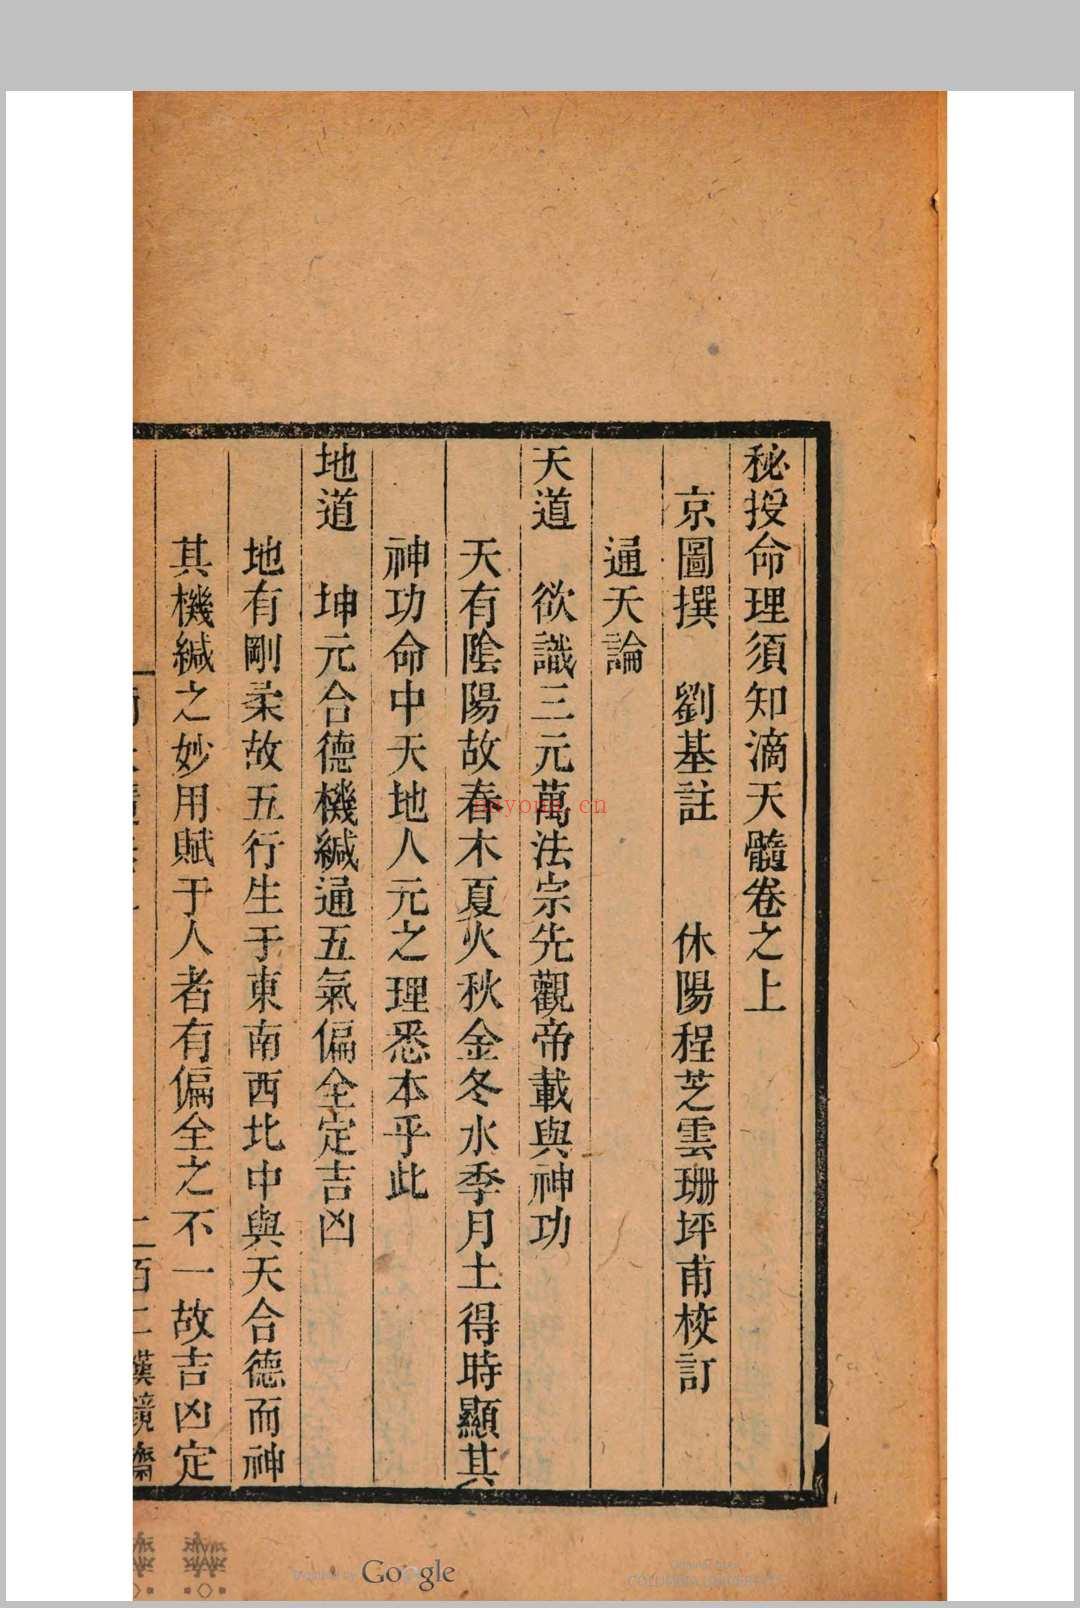 秘授命理須知滴天髓卷之上
京圖撰 劉基註 休陽程芝雲珊坪甫校訂
通天論
天道 欲識三元萬法宗先觀帝載與神功
天有陰陽故春木夏火秋金冬水季月土得時顯其
神功命中天地人元之理悉本乎此
地道 坤元合德機緘通五氣偏全定吉凶
地有剛柔故五行生于東南西北中與天合德而神
其機緘之妙用賦于人者有偏全之不一故吉凶定
二百二 漢鏡齋
nayona.cn
Digitized by Google
Original from
COLUMBIA UNIVERSITY